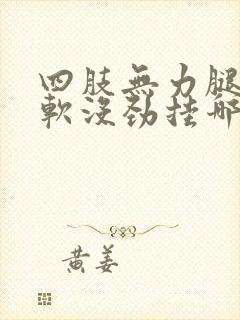 四肢無力腿
軟沒勁挂哪
黃姜